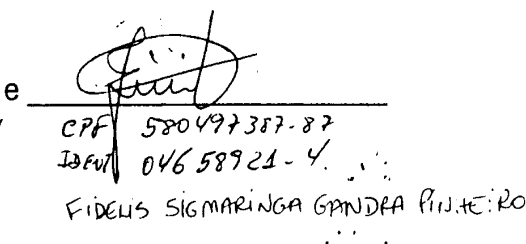 e
CPF 580497387-87
IDENT 04658921-4.
FIDELIS SIGMARINGA GANDRA PINHEIRO